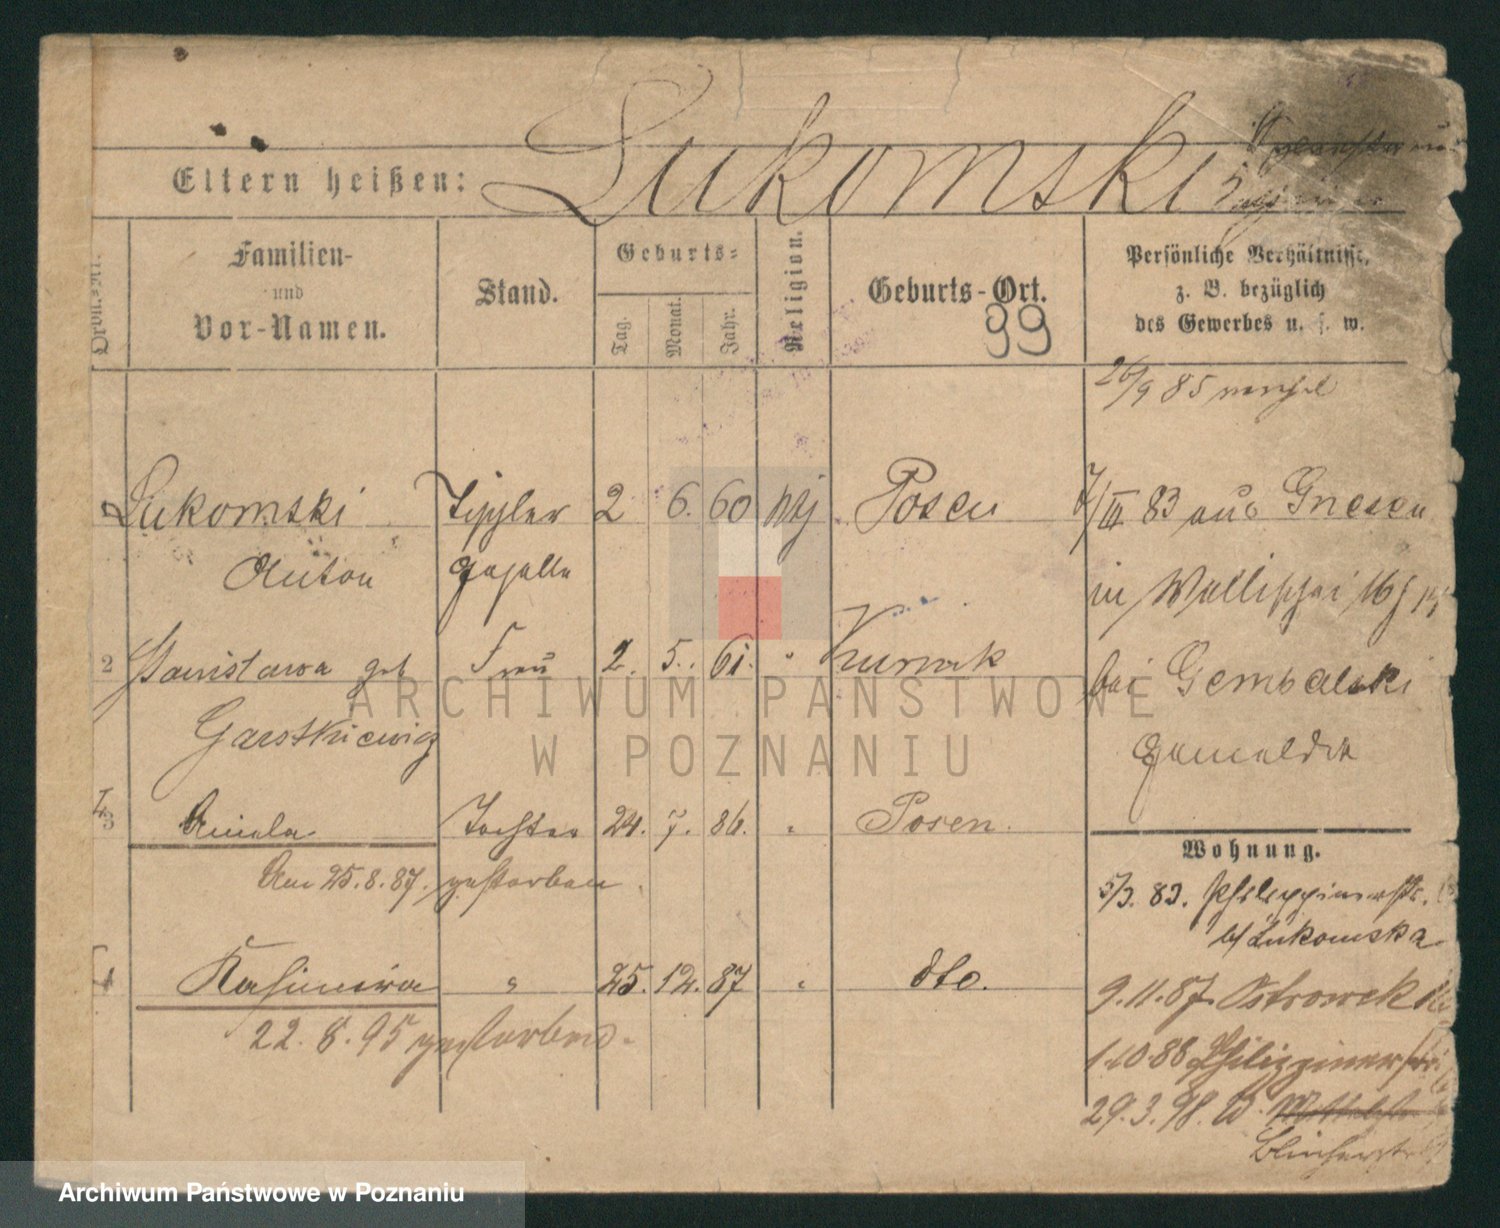 Eltern heißen: Lukomski
Ordn.-Nr.
Familien-
und
Vor-Namen.
Stand.
Geburts-
Tag.
Monat.
Jahr.
Religion.
Geburts-Ort.
99
Persönliche Verhältnisse,
z. B. bezüglich
des Gewerbes u. s. w.
26/9 85
Lukomski 2 6. 60 Posen
7/III 83 aus Gnesen
Anton
in Wallischei 16
2 Stanislawa geb Frau 2. 5. 61. " Kurnik
bei Gembalski
Garstkiewicz
3 Aniela Tochter 24. 7. 86. " Posen.
Am 25.8.87. gestorben
Wohnung.
5/3. 83. Philippinerstr.
b/ Lukomska
4 Kasimira " 25. 12. 87 " dto.
9.11.87. Ostrowek
22. 8. 95 gestorben.
1.10 88 Philippinerstr
29.3.98.
ARCHIWUM PAŃSTWOWE
W POZNANIU
Archiwum Państwowe w Poznaniu